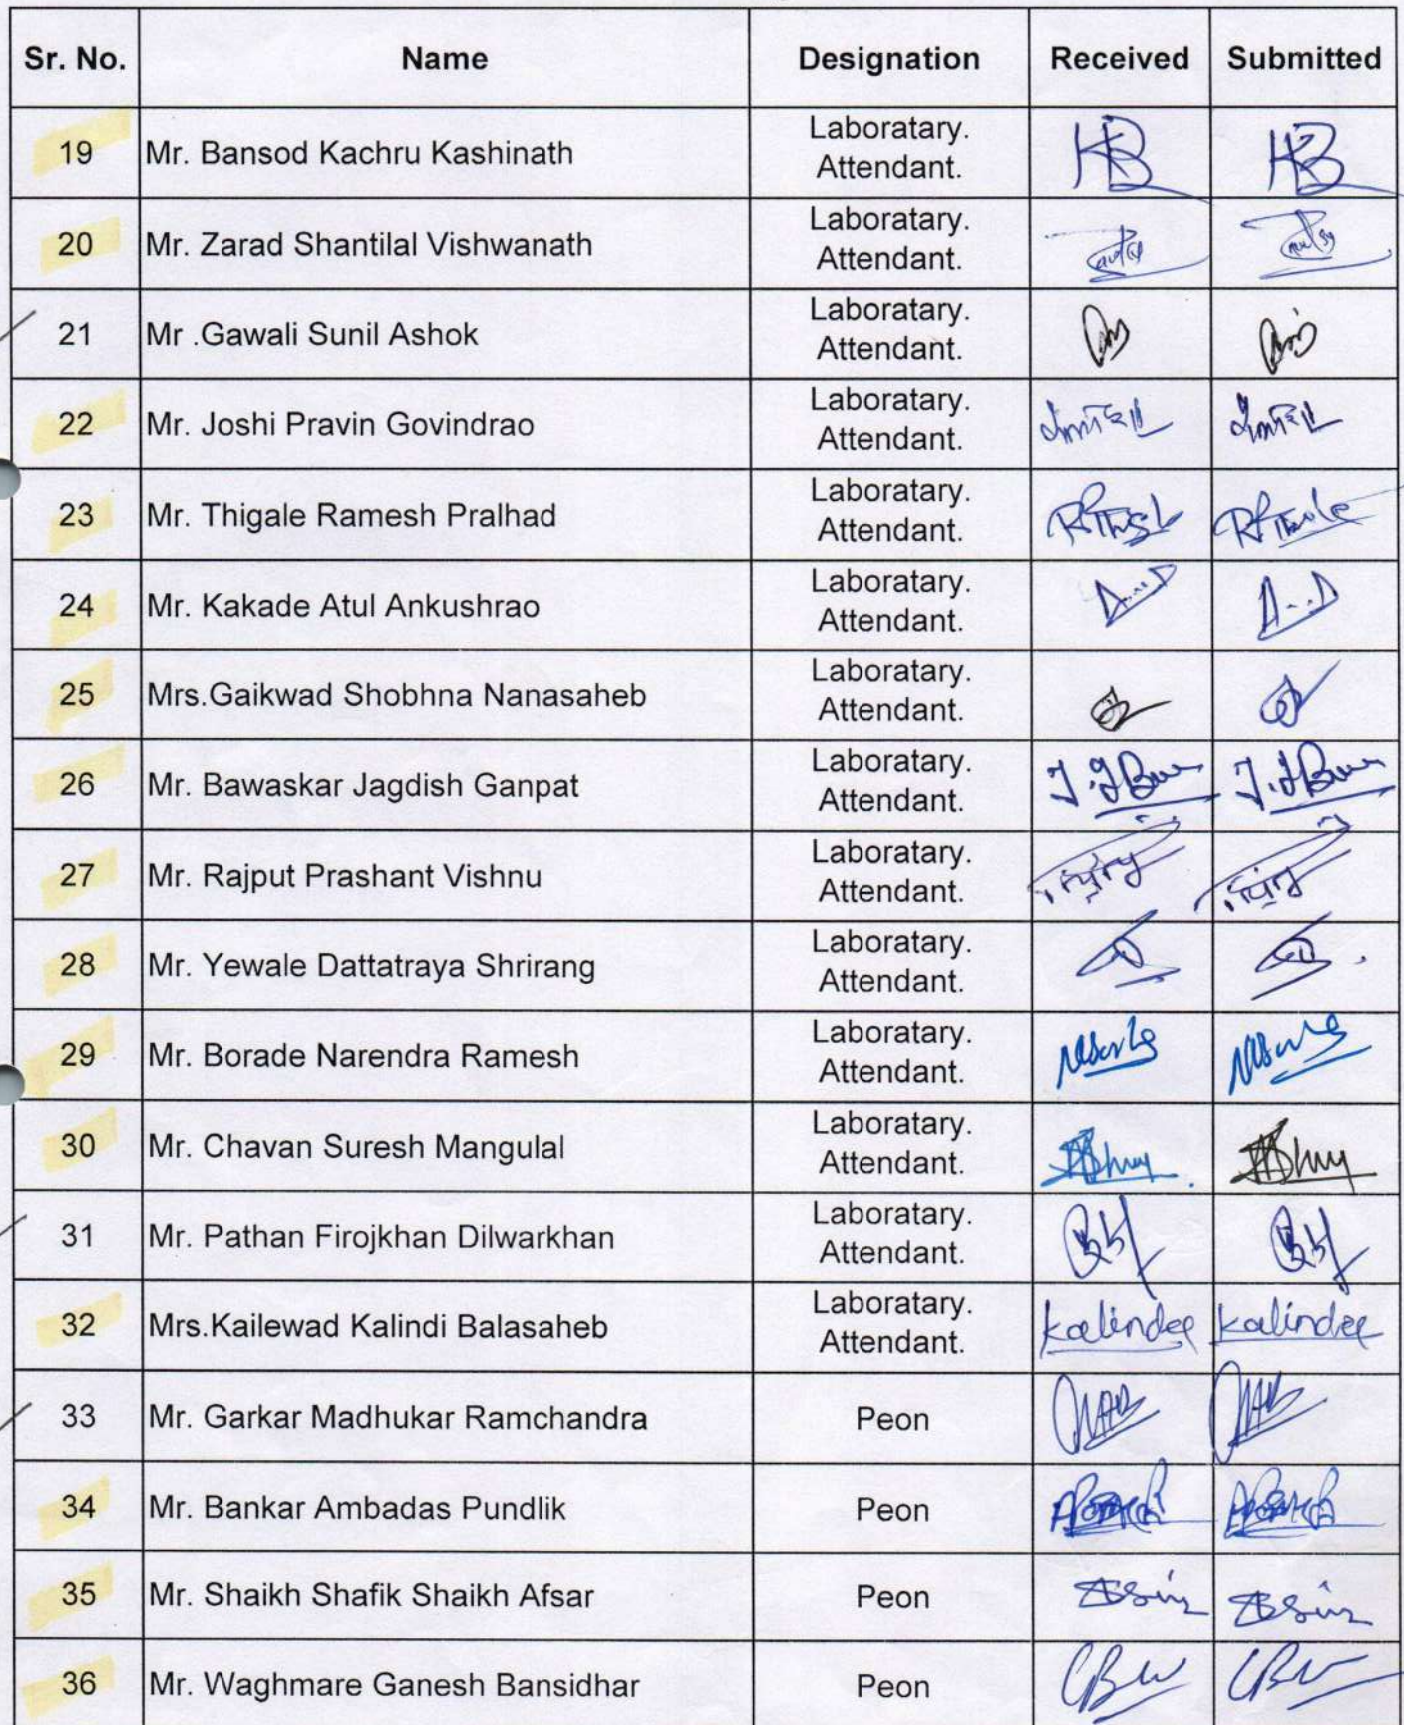 Sr. No. Name Designation Received Submitted
19 Mr. Bansod Kachru Kashinath Laboratary. Attendant. KB KB
20 Mr. Zarad Shantilal Vishwanath Laboratary. Attendant.
21 Mr .Gawali Sunil Ashok Laboratary. Attendant.
22 Mr. Joshi Pravin Govindrao Laboratary. Attendant.
23 Mr. Thigale Ramesh Pralhad Laboratary. Attendant.
24 Mr. Kakade Atul Ankushrao Laboratary. Attendant.
25 Mrs.Gaikwad Shobhna Nanasaheb Laboratary. Attendant.
26 Mr. Bawaskar Jagdish Ganpat Laboratary. Attendant.
27 Mr. Rajput Prashant Vishnu Laboratary. Attendant.
28 Mr. Yewale Dattatraya Shrirang Laboratary. Attendant.
29 Mr. Borade Narendra Ramesh Laboratary. Attendant.
30 Mr. Chavan Suresh Mangulal Laboratary. Attendant.
31 Mr. Pathan Firojkhan Dilwarkhan Laboratary. Attendant.
32 Mrs.Kailewad Kalindi Balasaheb Laboratary. Attendant. Kalindee Kalindee
33 Mr. Garkar Madhukar Ramchandra Peon
34 Mr. Bankar Ambadas Pundlik Peon
35 Mr. Shaikh Shafik Shaikh Afsar Peon
36 Mr. Waghmare Ganesh Bansidhar Peon